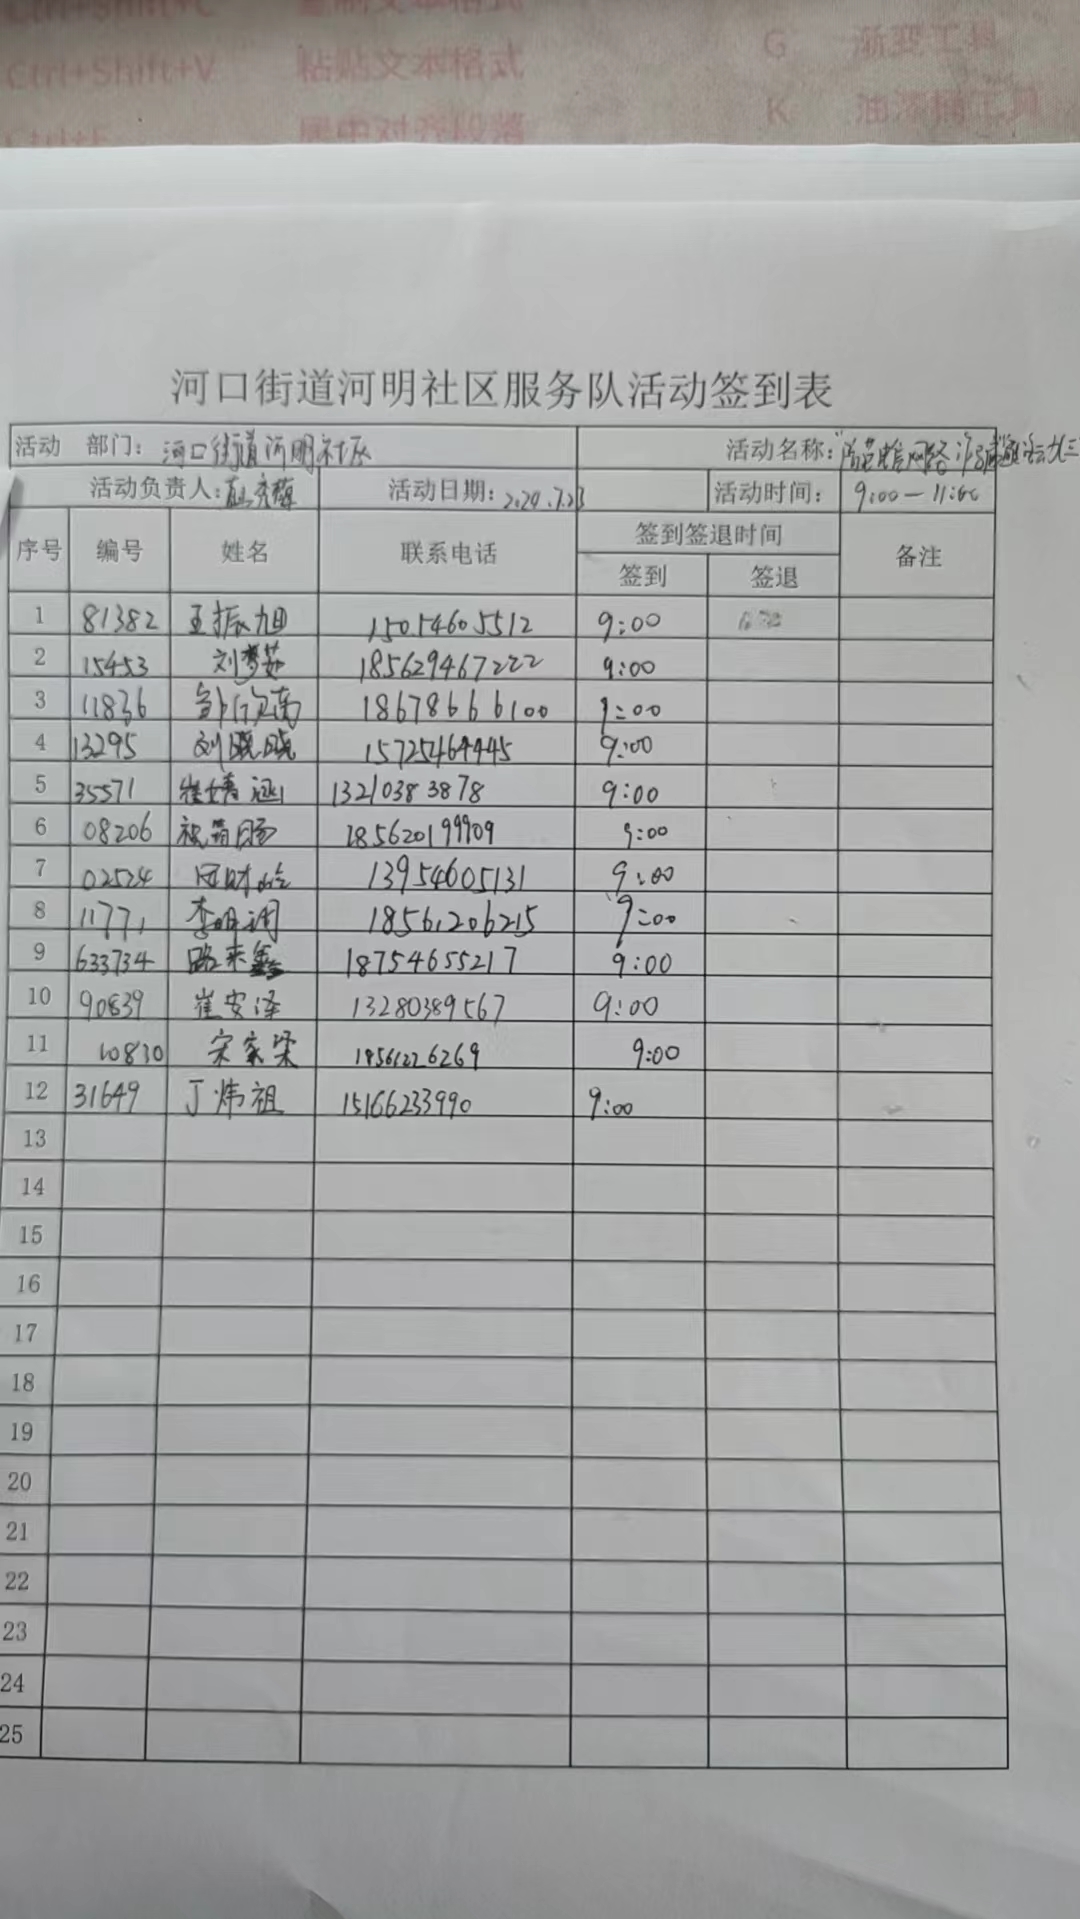 Ctrl+Shift+C 复制文本格式
Ctrl+Shift+V 粘贴文本格式 G 渐变工具
K 油漆桶工具
河口街道河明社区服务队活动签到表
活动 部门：河口街道河明社区 活动名称：
活动负责人： 活动日期：2024.7.23 活动时间：9:00—11:00
序号 编号 姓名 联系电话 签到签退时间 备注
签到 签退
1 81382 王振旭 15054605512 9:00
2 15453 刘梦茹 185629467222 9:00
3 11836 18678666100 9:00
4 13295 刘晓晓 15725464445 9:00
5 35571 崔婧涵 13210383878 9:00
6 08206 185620199909 9:00
7 02524 13954605131 9:00
8 11771 李明润 18561206215 9:00
9 633734 路来鑫 18754655217 9:00
10 90839 崔安泽 13280389567 9:00
11 10830 宋家梁 18561226269 9:00
12 31649 丁炜祖 15166233990 9:00
13
14
15
16
17
18
19
20
21
22
23
24
25